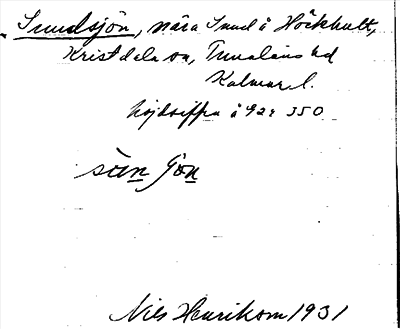 Sundsjön, nära Sund å Höckhult,
Kristdala sn, Tunaläns hd
Kalmar l.
höjdsiffra å 92: 350
sùn jö̀n
Nils Henrikson 1931